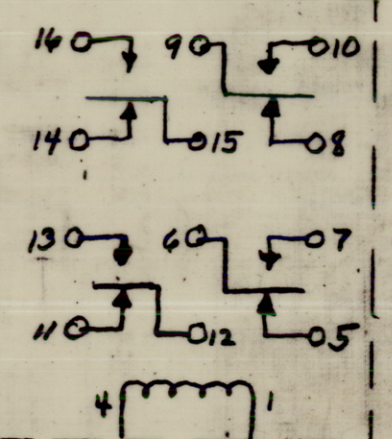 16 9 10
14 15 8
13 6 7
11 12 5
4 1